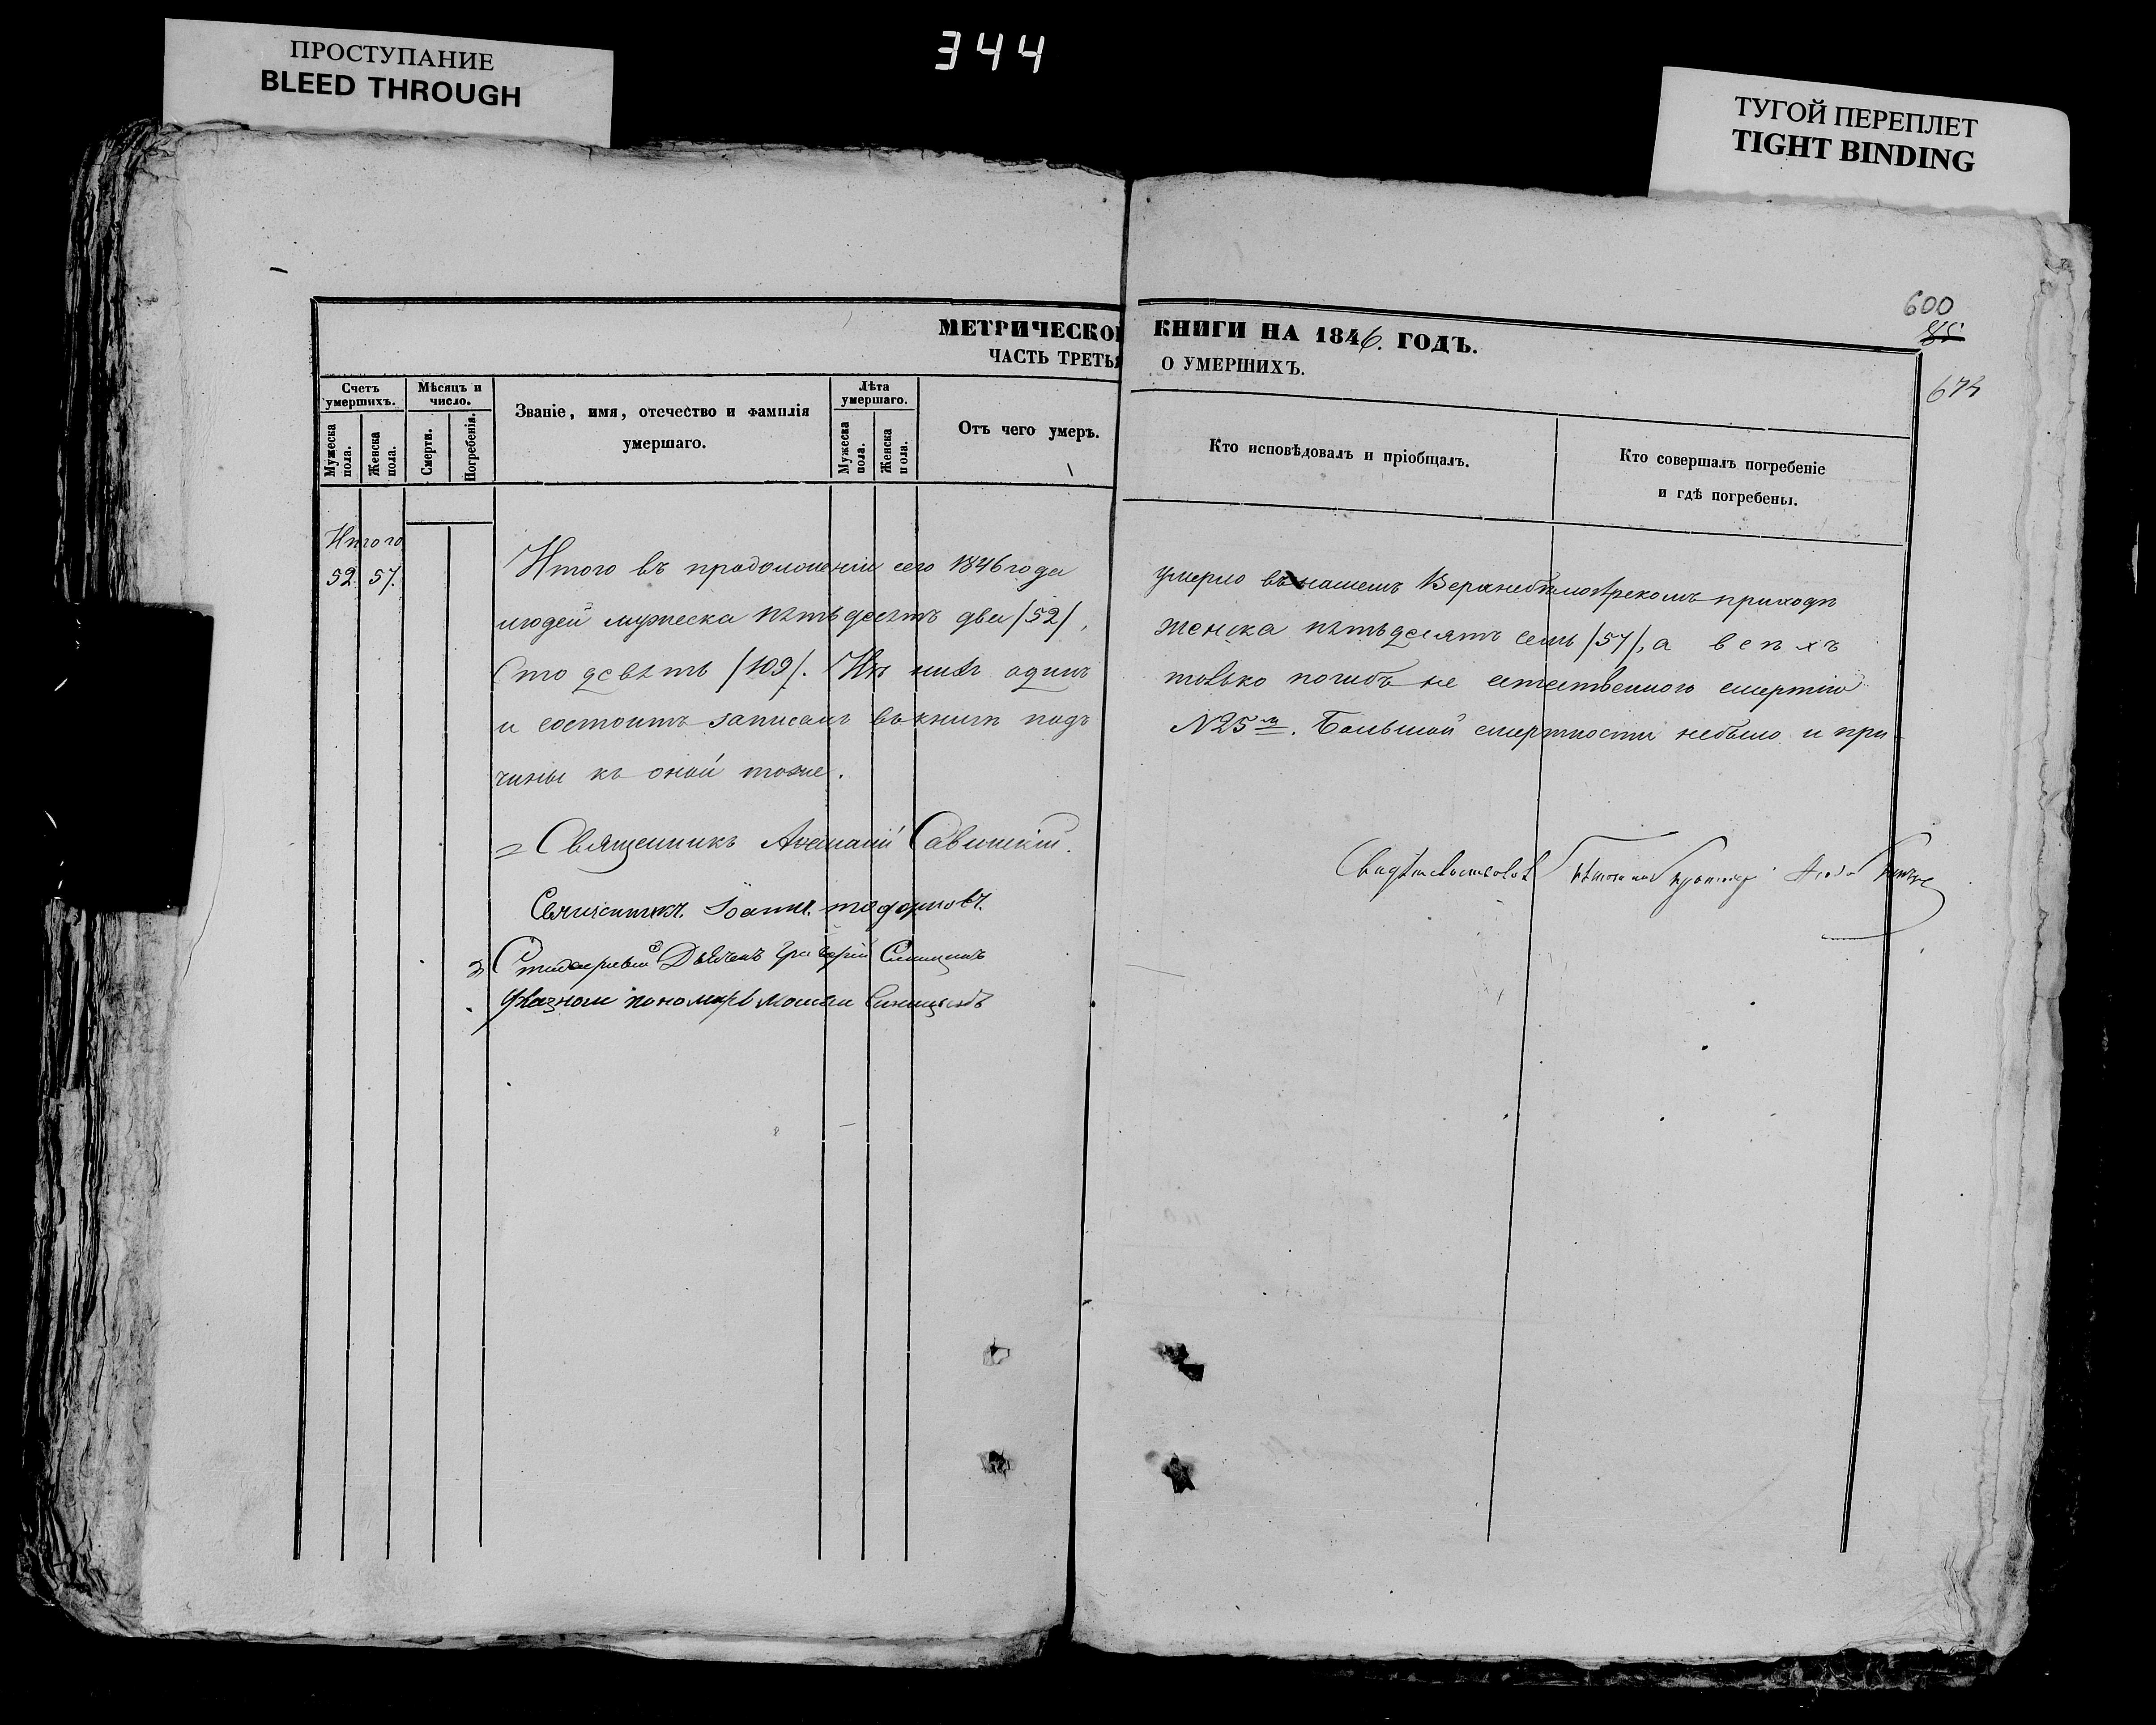 ПРОСТУПАНИЕ
BLEED THROUGH
344
ТУГОЙ ПЕРЕПЛЕТ
TIGHT BINDING
600
674
МЕТРИЧЕСКОЙ КНИГИ НА 1846. ГОДЪ.
ЧАСТЬ ТРЕТЬЯ О УМЕРШИХЪ.
Счетъ умершихъ.
Мужеска пола.
Женска пола.
Мѣсяцъ и число.
Смерти.
Погребенія.
Званіе, имя, отечество и фамилія умершаго.
Лѣта умершаго.
Мужеска пола.
Женска пола.
Отъ чего умеръ.
Кто исповѣдовалъ и пріобщалъ.
Кто совершалъ погребеніе
и гдѣ погребены.
Итого
52. 57.
Итого въ продолженіи сего 1846 года умерло въ нашемъ приходѣ
людей мужеска пятьдесятъ два /52/, женска пятьдесятъ семь /57/, а всѣхъ
Сто девять /109/. Изъ нихъ одинъ только погибъ не естественною смертію
и состоитъ записанъ въ книгѣ подъ №25м. Большой смертности небыло и при
чины къ оной тоже.
Священникъ Савинскій.
Священникъ Іоаннъ
Дьячекъ Григорій Синицынъ
пономарь Синицынъ